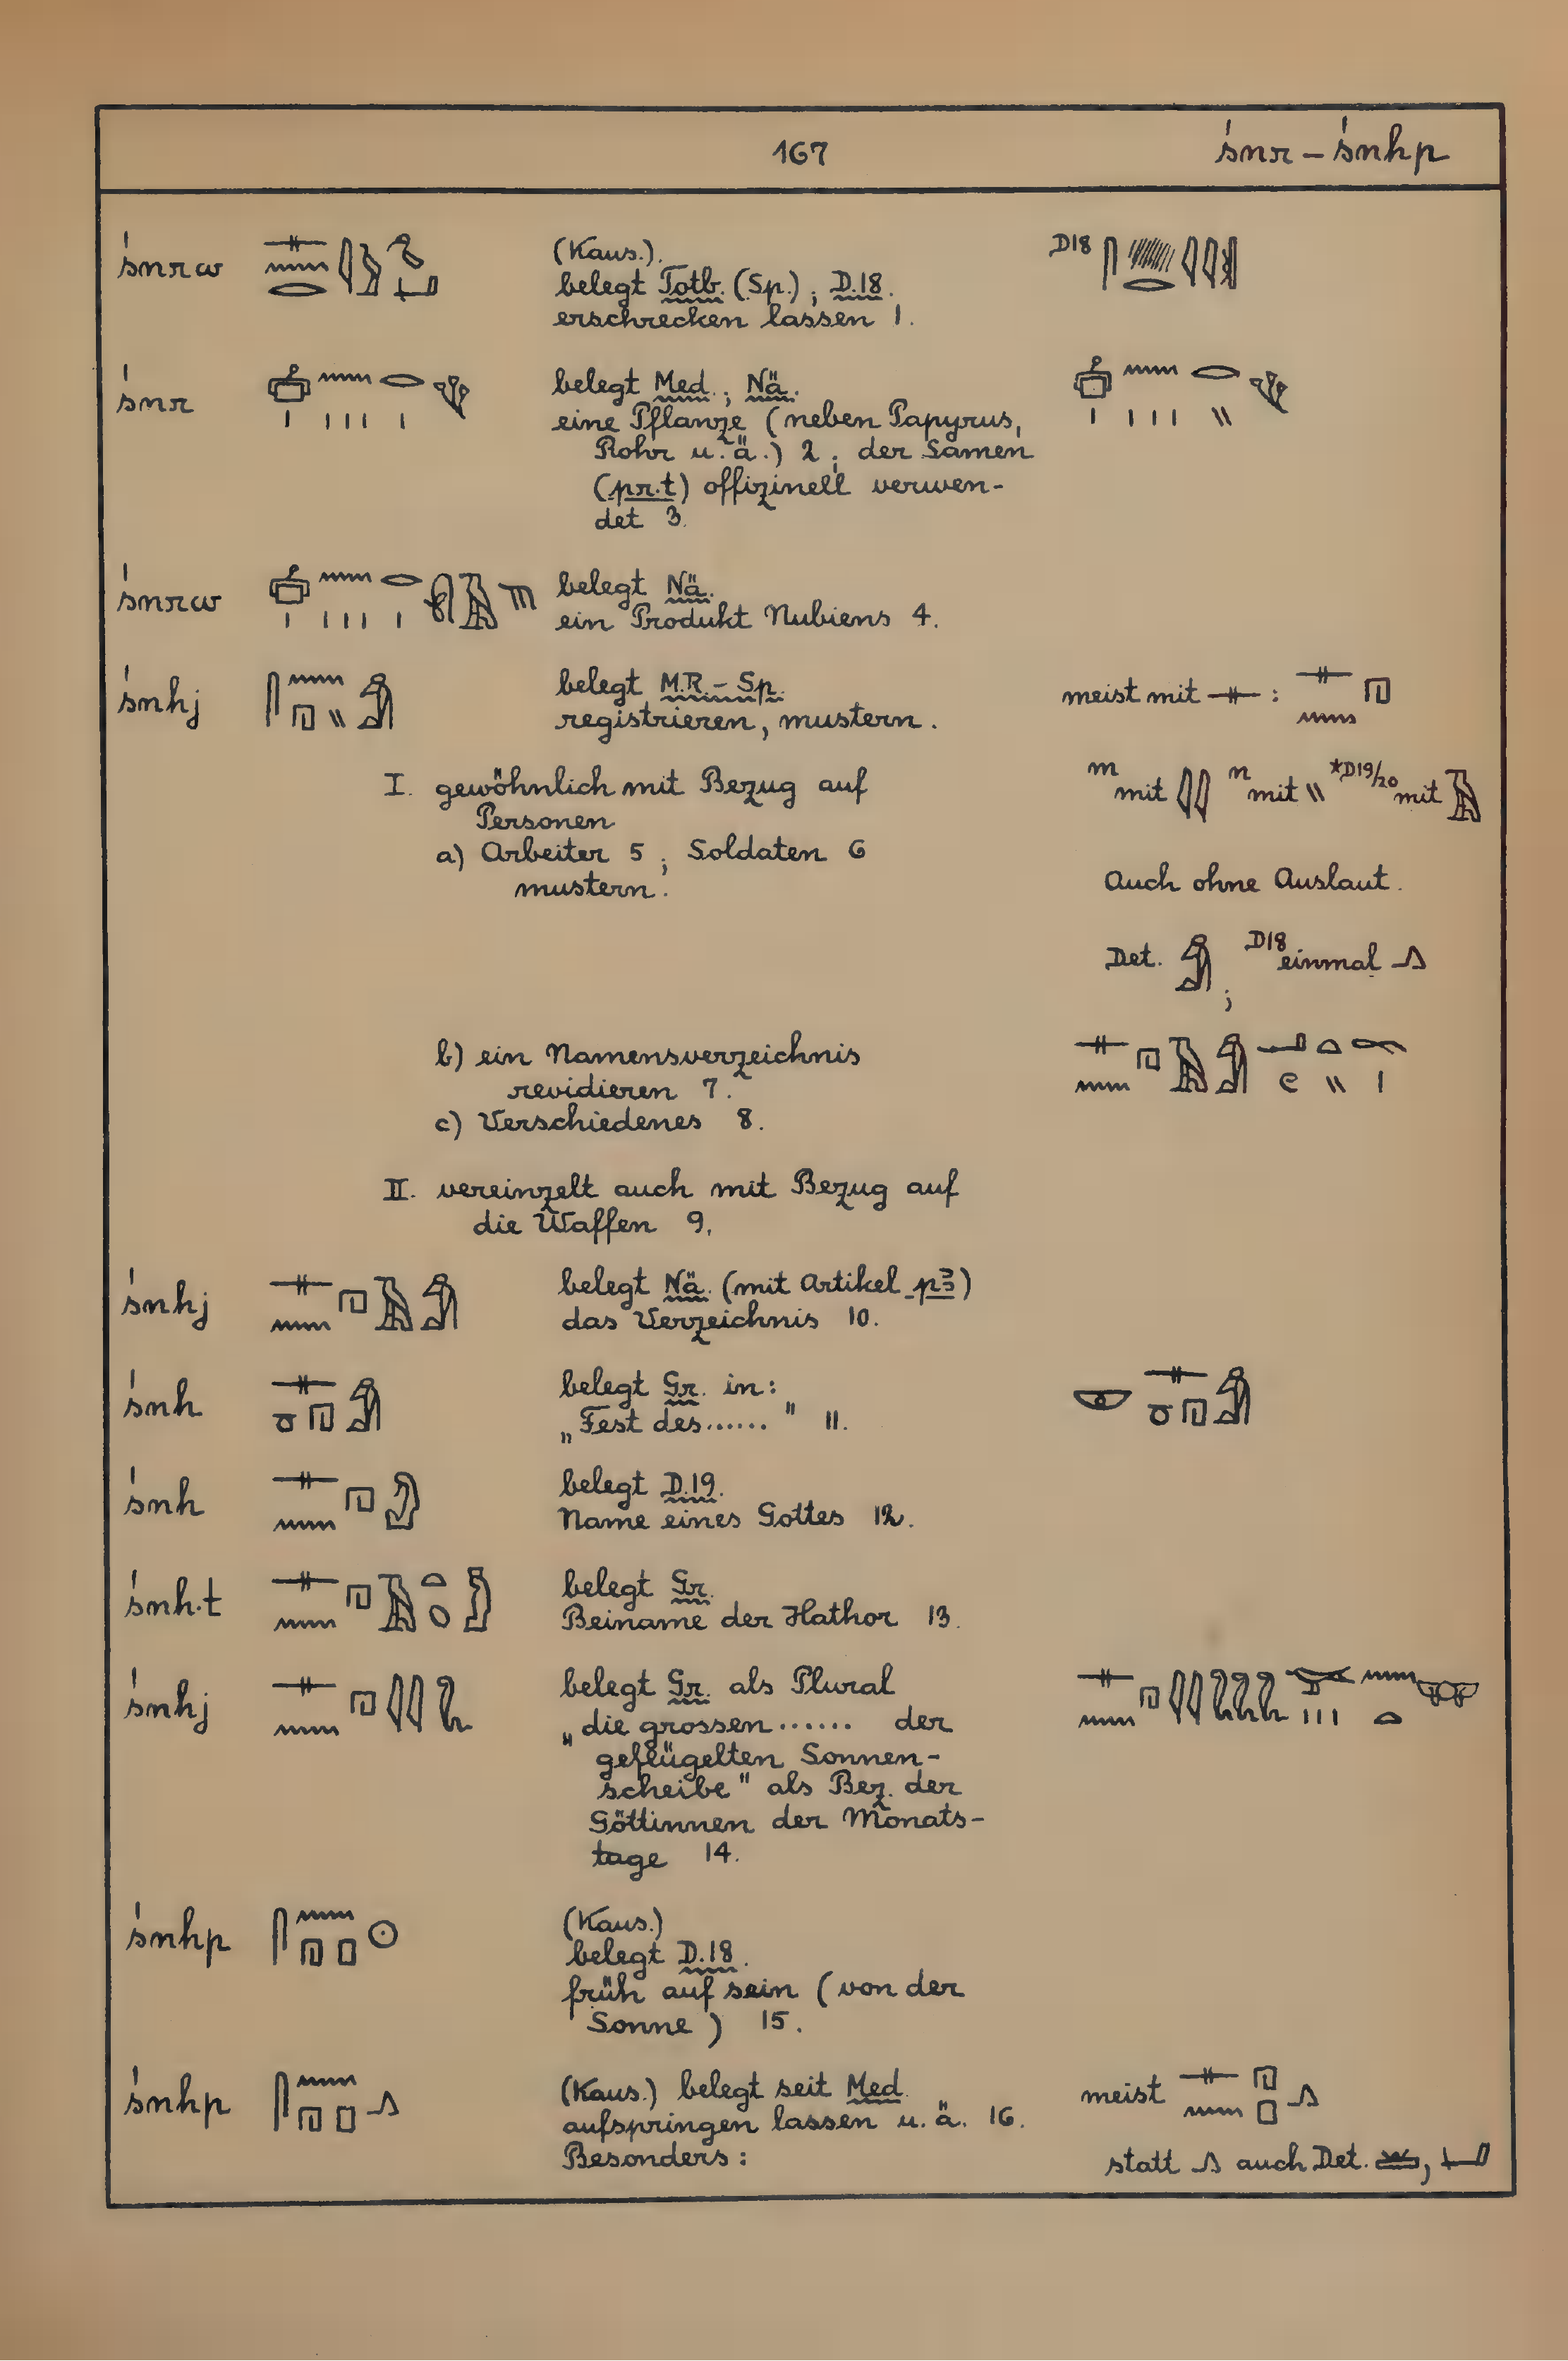 167 śnr – śnhp
śnrw (Kaus.). D18
belegt Totb. (Sp.) ; D.18.
erschrecken lassen 1.
śnr belegt Med. ; Nä.
eine Pflanze (neben Papyrus,
Rohr u. ä.) 2 ; der Samen
(pr.t) offizinell verwen-
det 3.
śnrw belegt Nä.
ein Produkt Nubiens 4.
śnhj belegt M.R. – Sp.
registrieren, mustern. meist mit :
I. gewöhnlich mit Bezug auf
Personen
m mit n mit *D19/20 mit
a) Arbeiter 5 ; Soldaten 6
mustern.
Auch ohne Auslaut.
Det. ; D18 einmal
b) ein Namensverzeichnis
revidieren 7.
c) Verschiedenes 8.
II. vereinzelt auch mit Bezug auf
die Waffen 9.
śnhj belegt Nä. (mit Artikel pꜣ)
das Verzeichnis 10.
śnh belegt Gr. in:
„Fest des......" 11.
śnh belegt D.19.
Name eines Gottes 12.
śnh.t belegt Gr.
Beiname der Hathor 13.
śnhj belegt Gr. als Plural
„die grossen ...... der
geflügelten Sonnen-
scheibe" als Bez. der
Göttinnen der Monats-
tage 14.
śnhp (Kaus.)
belegt D.18.
früh auf sein (von der
Sonne) 15.
śnhp (Kaus.) belegt seit Med. meist
aufspringen lassen u. ä. 16.
Besonders: statt auch Det. ,